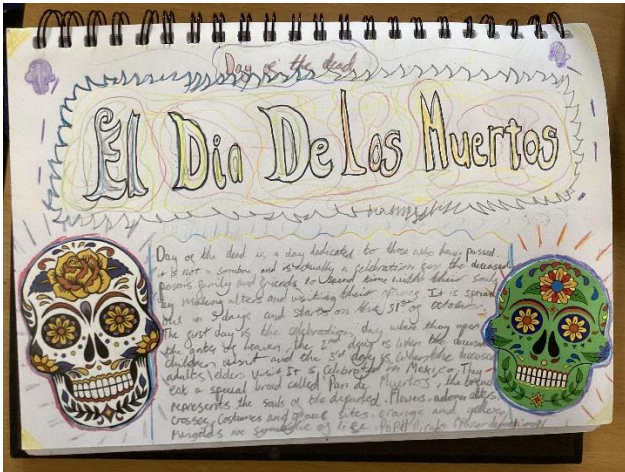 Day of the dead
El Dia De Los Muertos
Day of the dead is a day dedicated to those who have passed.
it is not a somber and is actually a celebration for the deceased
persons family and friends to spend time with their souls
by making alters and visiting their graves. It is spread
out in 3 days and starts on the 31st of October.
The first day is the celebration day where they open
the gates of heaven, the 2nd day is when the deceased
children visit and the 3rd day is when the deceased
adults/elders visit. It is celebrated in Mexico. They
eat a special bread called Pan de Muertos, the bread
represents the souls of the departed. Flowers adorn alters
crosses, costumes and grave sites. orange and yellow
Marigolds are symbolic of life.